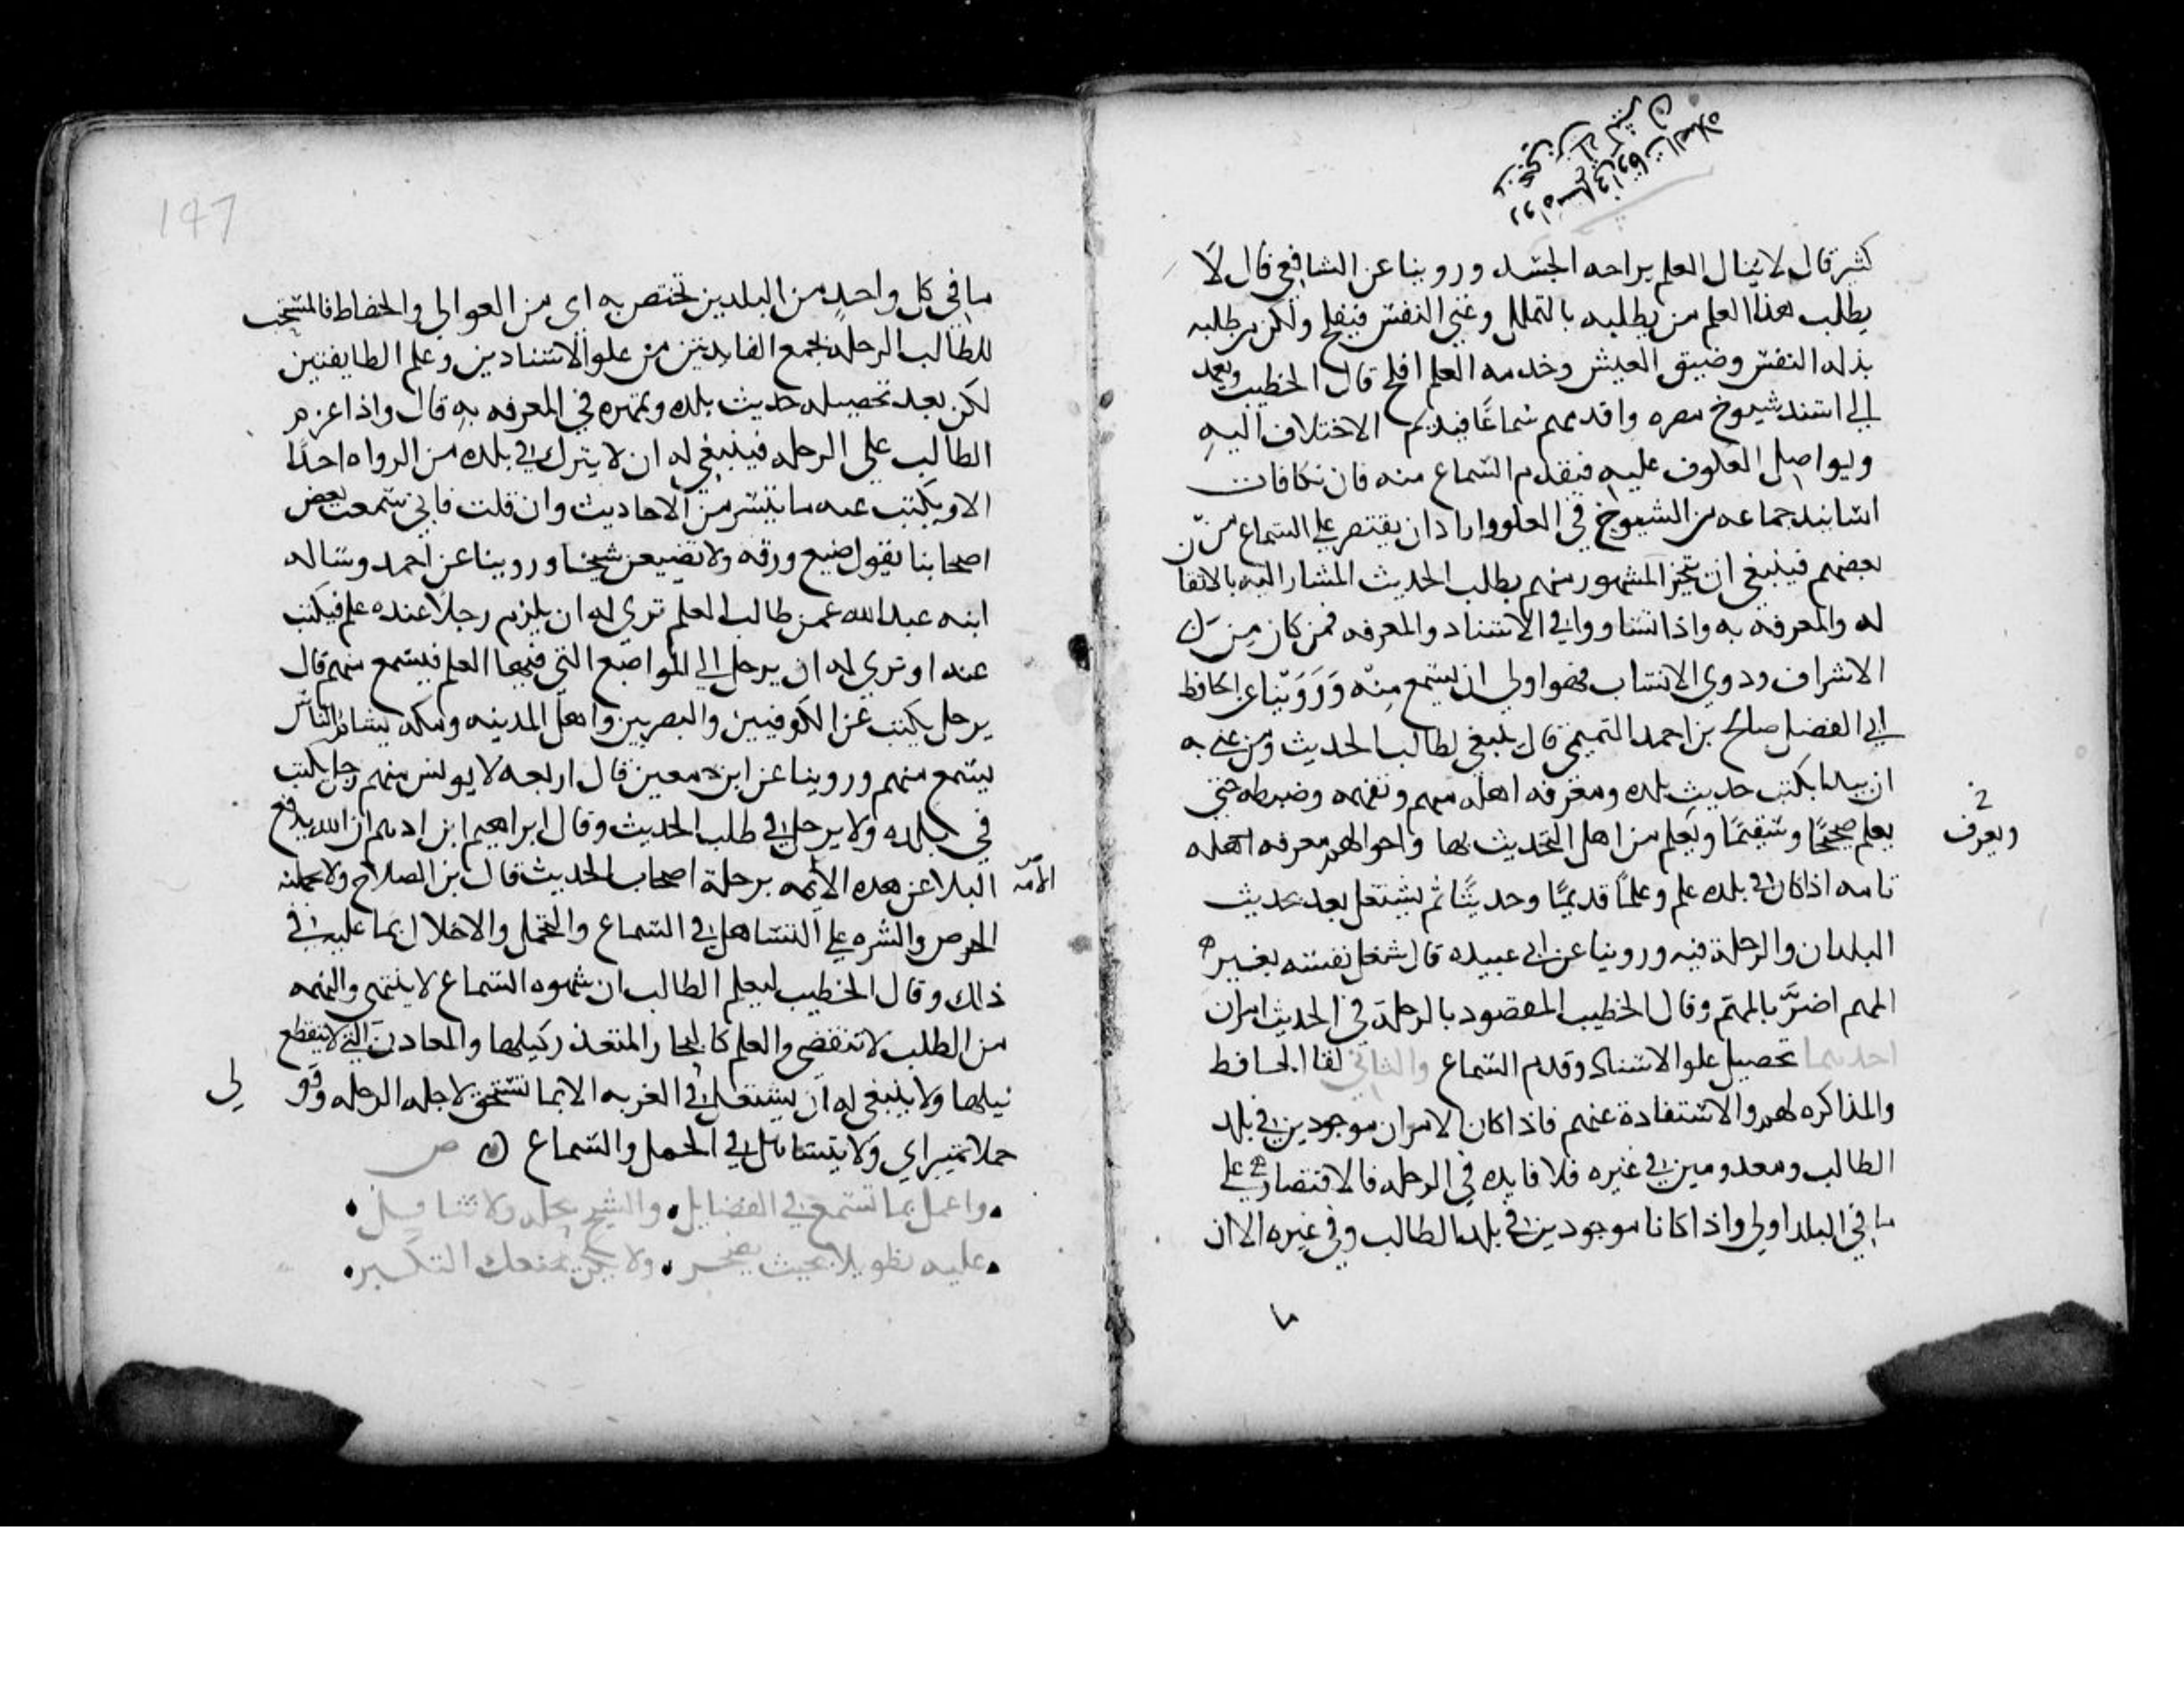 كثير قال لا ينال العلم براحه الجسد وروينا عن الشافعي قال لا
يطلب هذا العلم من يطلبه بالتملل وغني النفس فيفلح ولكن من طلبه
بذله النفس وضيق العيش وخدمه العلم افلح قال الخطيب ويعمد
الي اسند شيوخ مصره واقدمهم سماعًا فيديم الاختلاف اليه
ويواصل العكوف عليه فيقدم السماع منه فان تكافات
اسانيد جماعه من الشيوخ في العلو واراد ان يقتصر علي السماع من
بعضهم فينبغي ان يتخير المشهور منهم بطلب الحديث المشار اليه بالاتقان
له والمعرفه به واذا تساووا في الاسناد والمعرفه فمن كان من
الاشراف وذوي الانساب فهو اولي ان يسمع منه وروينا عن الحافظ
ابي الفضل صالح بن احمد التميمي قال ينبغي لطالب الحديث ومن عني به
ان يبدا بكتب حديث بلده ومعرفه اهله منهم وتفهمه وضبطه حتي
يعلم صحيحًا وسقيمًا ويعلم من اهل التحديث بها واحوالهم معرفه اهله
ويعرف
تامه اذا كان في بلده علم وعلمًا قديمًا وحديثًا ثم يشتغل بعد بحديث
البلدان والرحلة فيه وروينا عن ابي عبيده قال شغل نفسه بغير
المهم اضرّ بالمهم وقال الخطيب المقصود بالرحلة في الحديث امران
احدهما تحصيل علو الاسناد وقدم السماع والثاني لقا الحافظ
والمذاكره لهم والاستفادة عنهم فاذا كان الامران موجودين في بلد
الطالب ومعدومين في غيره فلا فايده في الرحله فالاقتصار علي
ما في البلد اولي واذا كانا موجودين في بلد الطالب وفي غيره الا ان
ما
147
ما في كل واحد من البلدين تختص به اي من العوالي والحفاظ فالمستحب
للطالب الرحله لجمع الفايدتين من علو الاسنادين وعلم الطايفتين
لكن بعد تحصيله حديث بلده وتمهره في المعرفه به قال واذا عزم
الطالب علي الرحله فينبغي له ان لا يترك في بلده من الرواه احدًا
الا ويكتب عنه ما تيسر من الاحاديث وان قلت فاني سمعت بعض
اصحابنا يقول ضيع ورقه ولا تضيعن شيخا وروينا عن احمد وساله
ابنه عبد الله عمن طالب العلم تري له ان يلزم رجلا عنده علم فيكتب
عنه او تري له ان يرحل الي المواضع التي فيها العلم فيسمع منهم قال
يرحل يكتب عن الكوفيين والبصريين واهل المدينه ومكه يشام الناس
يسمع منهم وروينا عن ابن معين قال اربعه لا يونس منهم رجل يكتب
في بلده ولا يرحل في طلب الحديث وقال ابراهيم ابن ادهم ان الله يدفع
البلا عن هذه الأئمه برحلة اصحاب الحديث قال بن الصلاح ولا يحملنه
الأمّه
الحرص والشره علي التساهل في السماع والتحمل والاخلال بما عليه في
ذلك وقال الخطيب ليعلم الطالب ان شهوه السماع لا ينتهي والنهمه
من الطلب لا تنقضي والعلم كالبحار المتعذر كيلها والمعادن التي لا ينقطع
نيلها ولا ينبغي له ان يشتغل في الغربه الا بما تستحق لاجله الرحله
حملا تميز اي ولا يتساهل في الحمل والسماع ص
واعمل بما تسمع في الفضايل والشيخ بجله ولا تثاقل
عليه تطويلا بحيث يضجر ولا تكن يمنعك التكبر